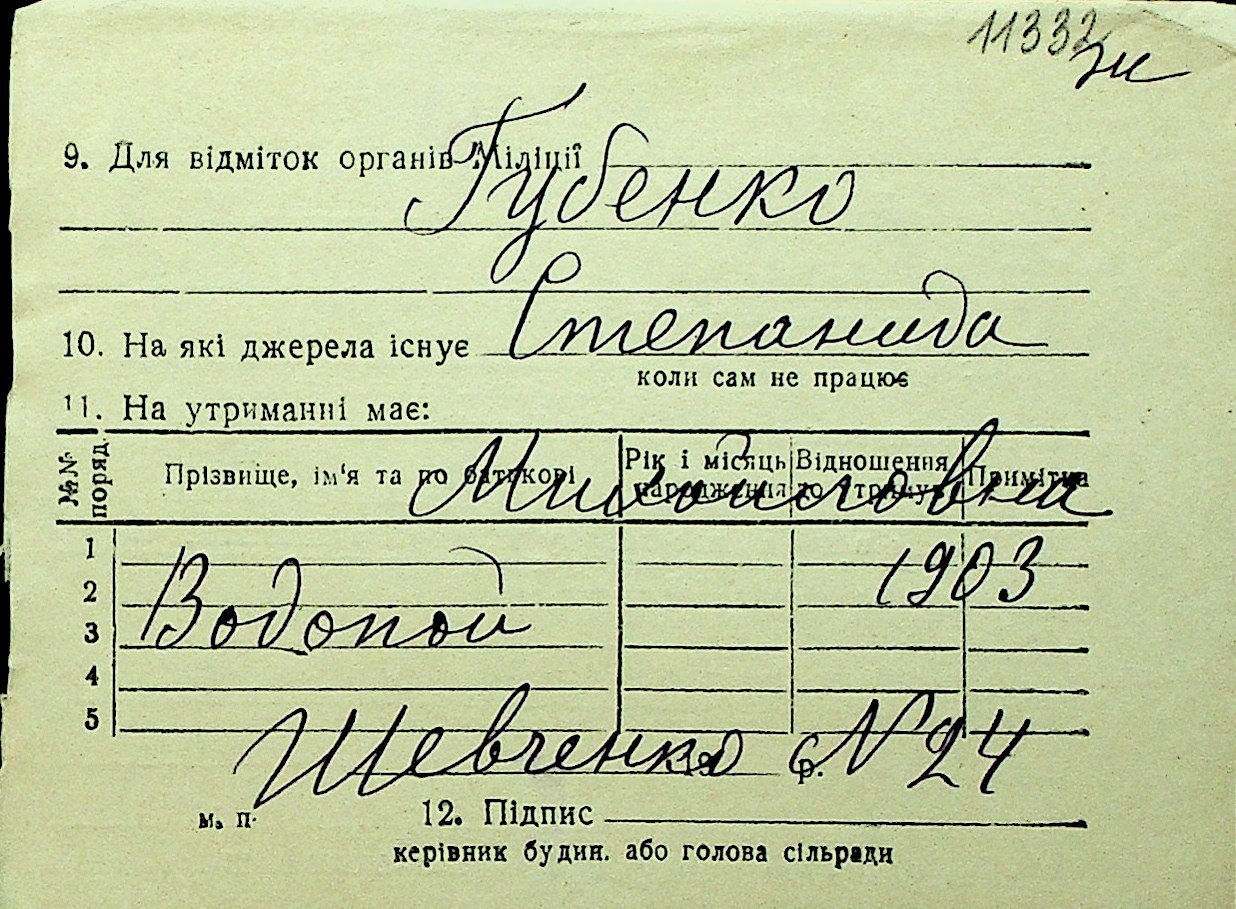 11332
9. Для відміток органів Міліції
Губенко
Степанида
10. На які джерела існує
коли сам не працює
11. На утриманні має:
№№ поряд. Прізвище, ім'я та по батькові Рік і місяць народження Відношення до утриму Примітка
Михайловна
1
1903
2
Водопой
3
4
5
Шевченко № 24
19 р.
м. п.
12. Підпис
керівник будин. або голова сільради